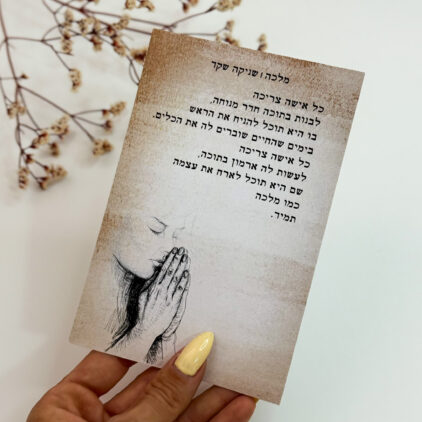 מלכה | שניקה שקד
כל אישה צריכה
לבנות בתוכה חדר מנוחה,
בו היא תוכל להניח את הראש
בימים שהחיים שוברים לה את הכלים.
כל אישה צריכה
לעשות לה ארמון בתוכה,
שם היא תוכל לארח את עצמה
כמו מלכה
תמיד.